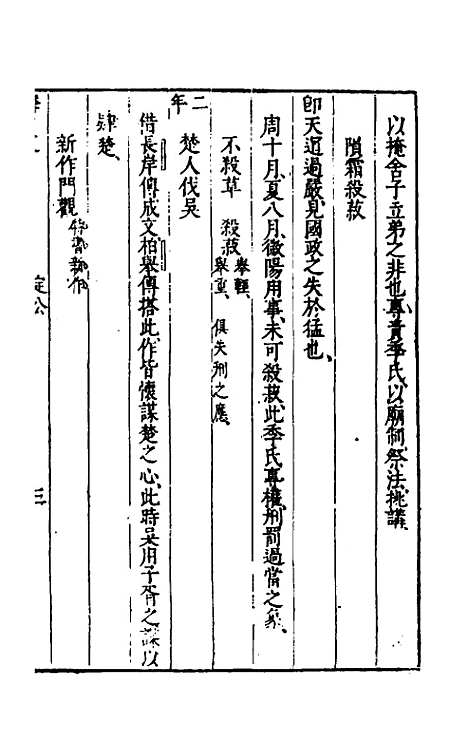 以掩舍子立弟之非也專責季氏以廟制祭法挑講
隕霜殺菽
卽天道過嚴見國政之失於猛也
周十月夏八月微陽用事未可殺菽此季氏專權刑罰過當之象
不殺草 殺菽舉輕舉重俱失刑之應
二年
楚人伐吳
借長岸傳成文柏舉傳搭此作皆懷謀楚之心此時吳用子胥之謀以
肄楚
新作門觀特書新作
定公 三